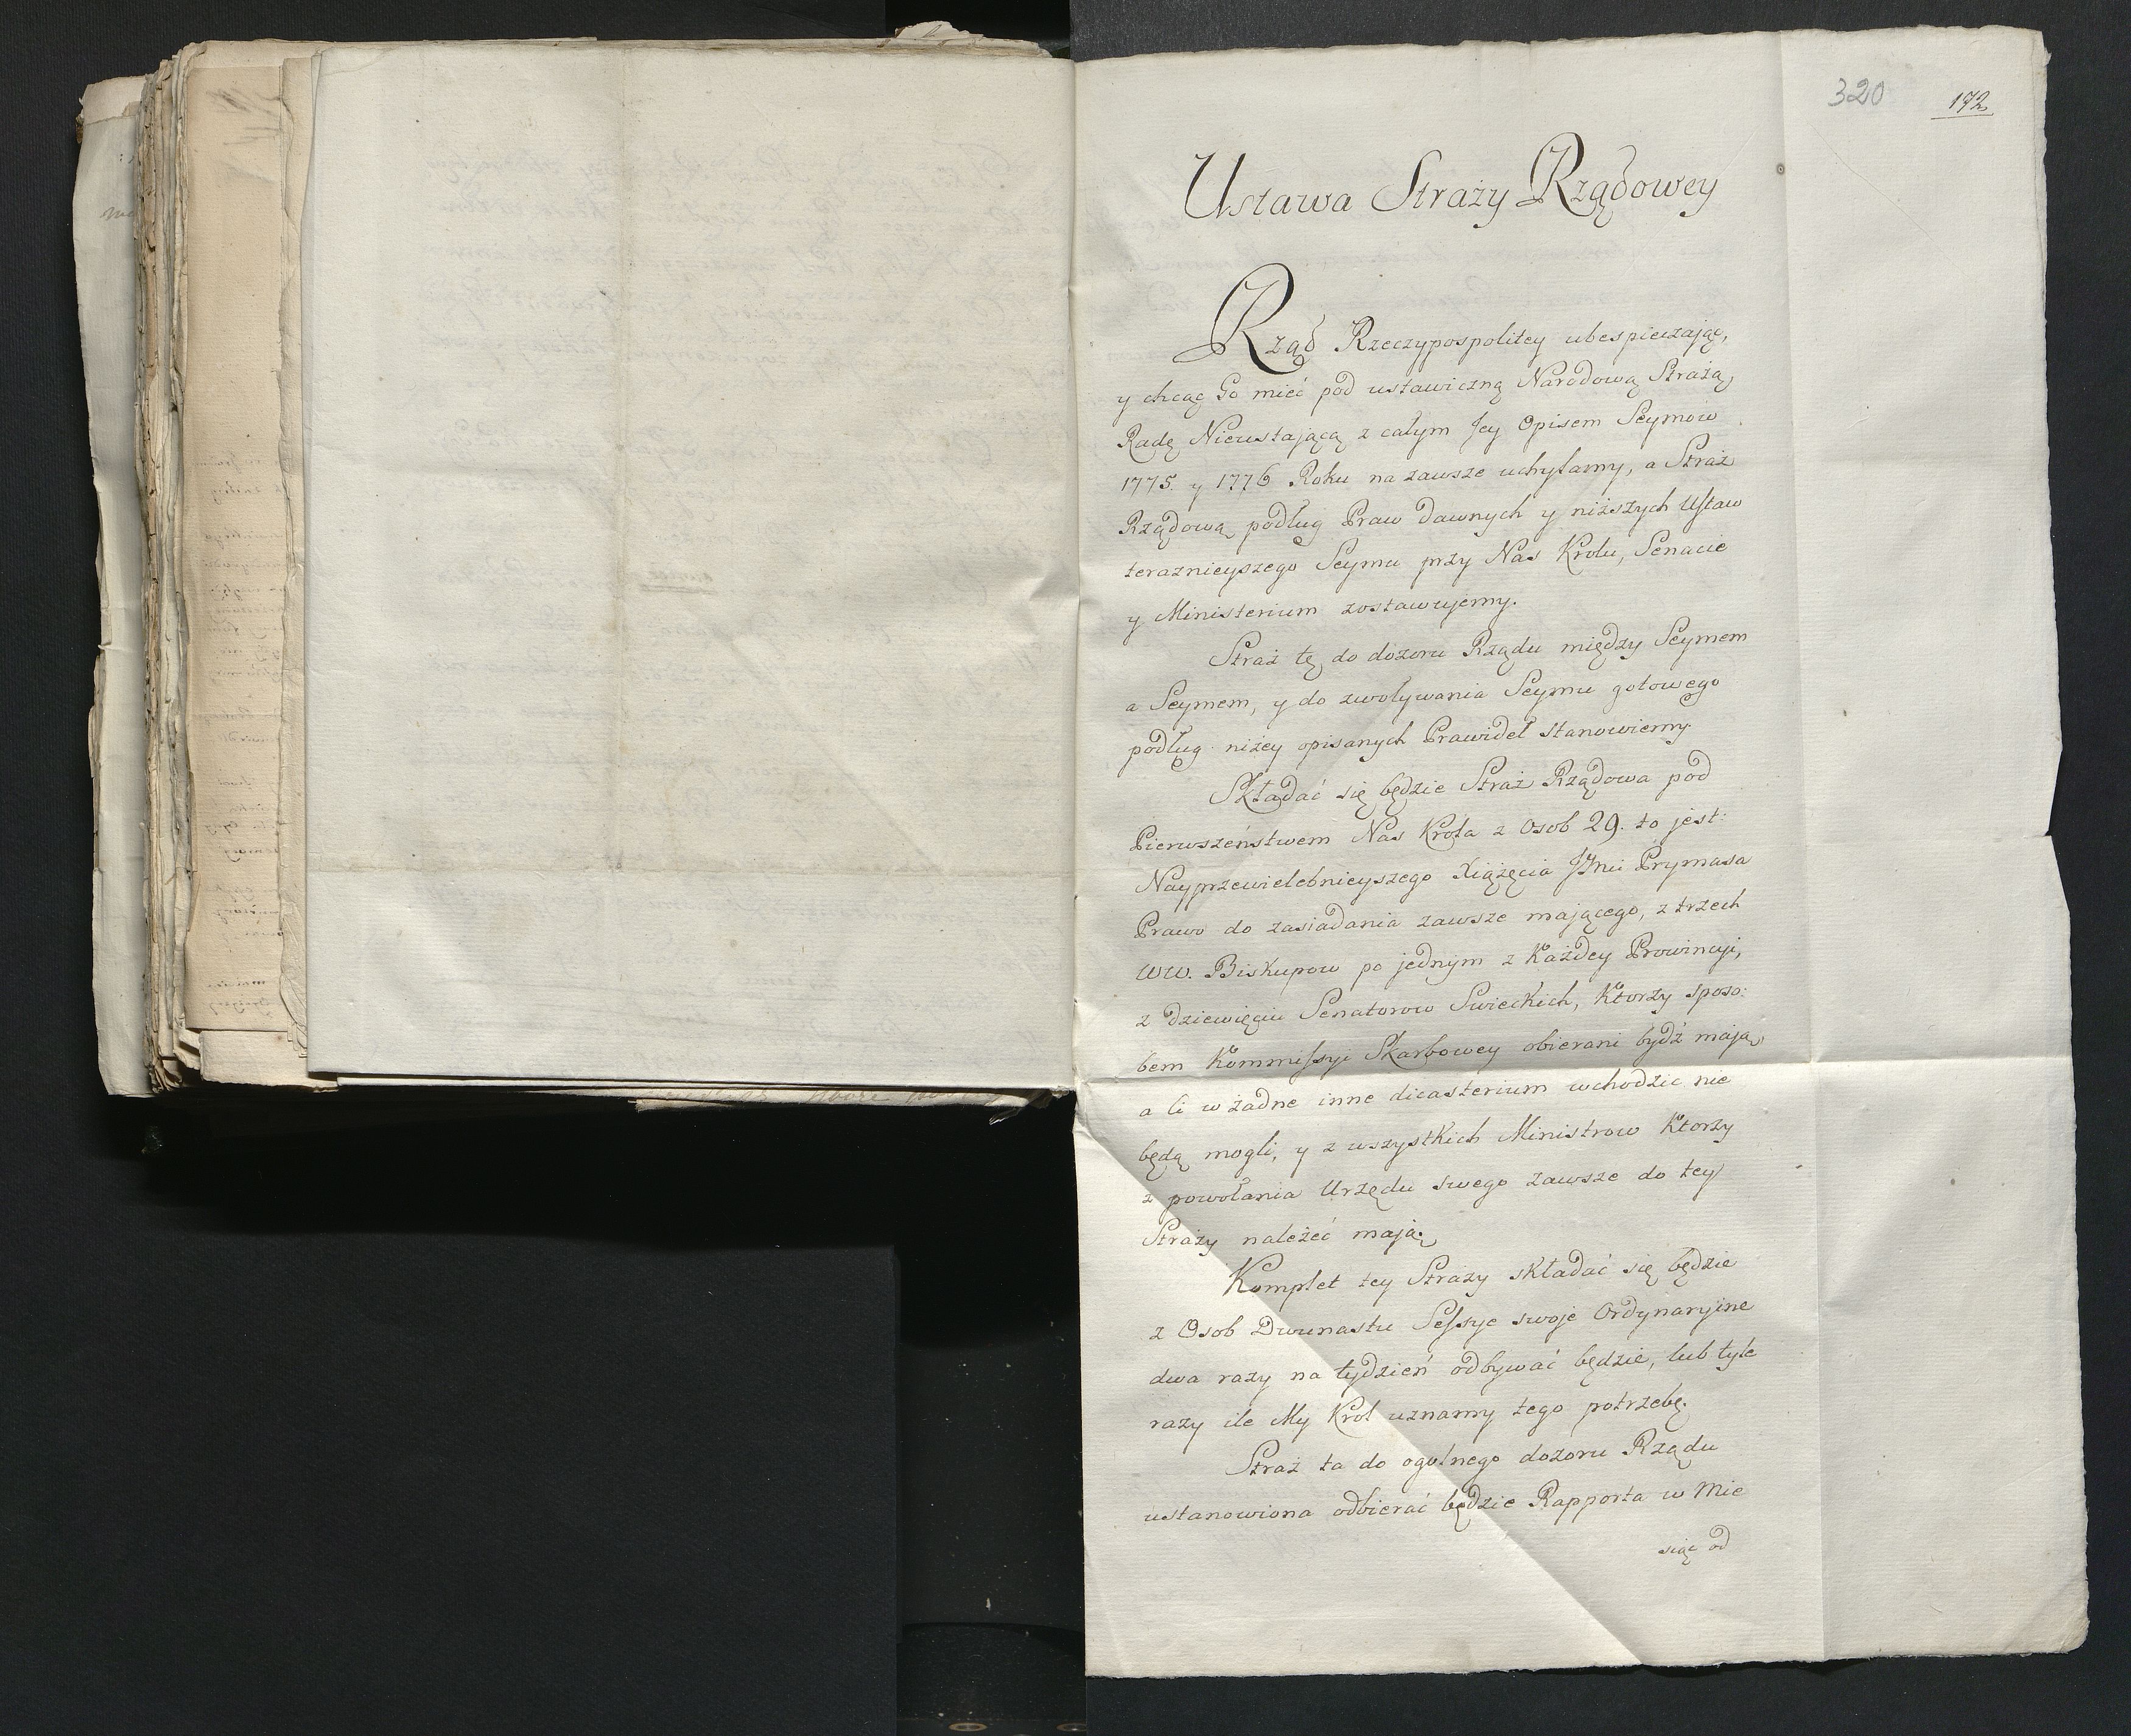 320
172
Ustawa Straży Rządowey
Rząd Rzeczypospolitey ubespieczając,
y chcąc Go mieć pod ustawiczną Narodową Strażą,
Radę Nieustaiącą z całym Jey Opisem Seymow
1775. y 1776 Roku na zawsze uchylamy, a Straż
Rządową podług Praw dawnych y niższych Ustaw
teraznieyszego Seymu przy Nas Krolu, Senacie
y Ministerium zostawujemy.
Straż tę do dozoru Rządu między Seymem
a Seymem, y do zwoływania Seymu gotowego
podług niżey opisanych Prawideł stanowiemy.
Składać się będzie Straż Rządowa pod
Pierwszeństwem Nas Krola z Osob 29. to jest:
Nayprzewielebnieyszego Xiążęcia Jmci Prymasa
Prawo do zasiadania zawsze mającego, z trzech
WW. Biskupow po jednym z Każdey Prowincyi,
z dziewięciu Senatorow Swieckich, Ktorzy sposo:
bem Kommissyi Skarbowey obierani bydź mają,
a ci w żadne inne dicasterium wchodzic nie
będą mogli, y z wszystkich Ministrow Ktorzy
z powołania Urzędu swego zawsze do tey
Straży należeć mają.
Komplet tey Straży składać się będzie
z Osob Dwunastu Sessye swoje Ordynaryine
dwa razy na tydzień odbywać będzie, lub tyle
razy ile My Krol uznamy tego potrzebę.
Straż ta do ogulnego dozoru Rządu
ustanowiona odbierać będzie Rapporta w Mie
siąc od